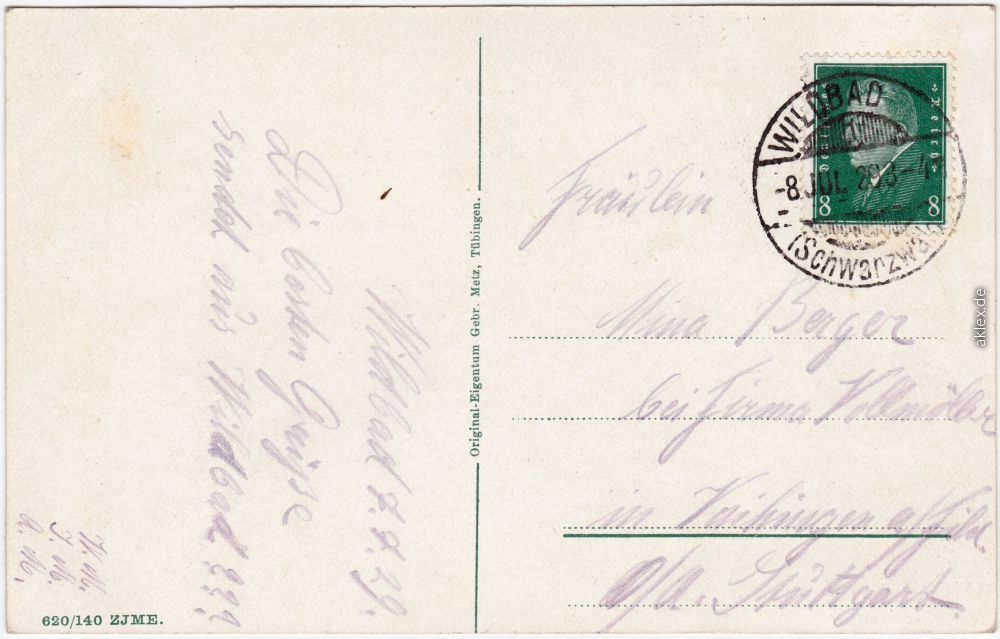 Wildbad 7.7.29.
Die besten Grüsse
sendet aus Wildbad ???
J. M.
A. M.
620/140 ZJME.
Original-Eigentum Gebr. Metz, Tübingen.
WILDBAD
-8.JUL. 29.3-4
(Schwarzwald)
8 8
Fräulein
Mina Berger
bei Firma Vollmöller
in Vaihingen a/Fild.
O/A. Stuttgart
aklex.de